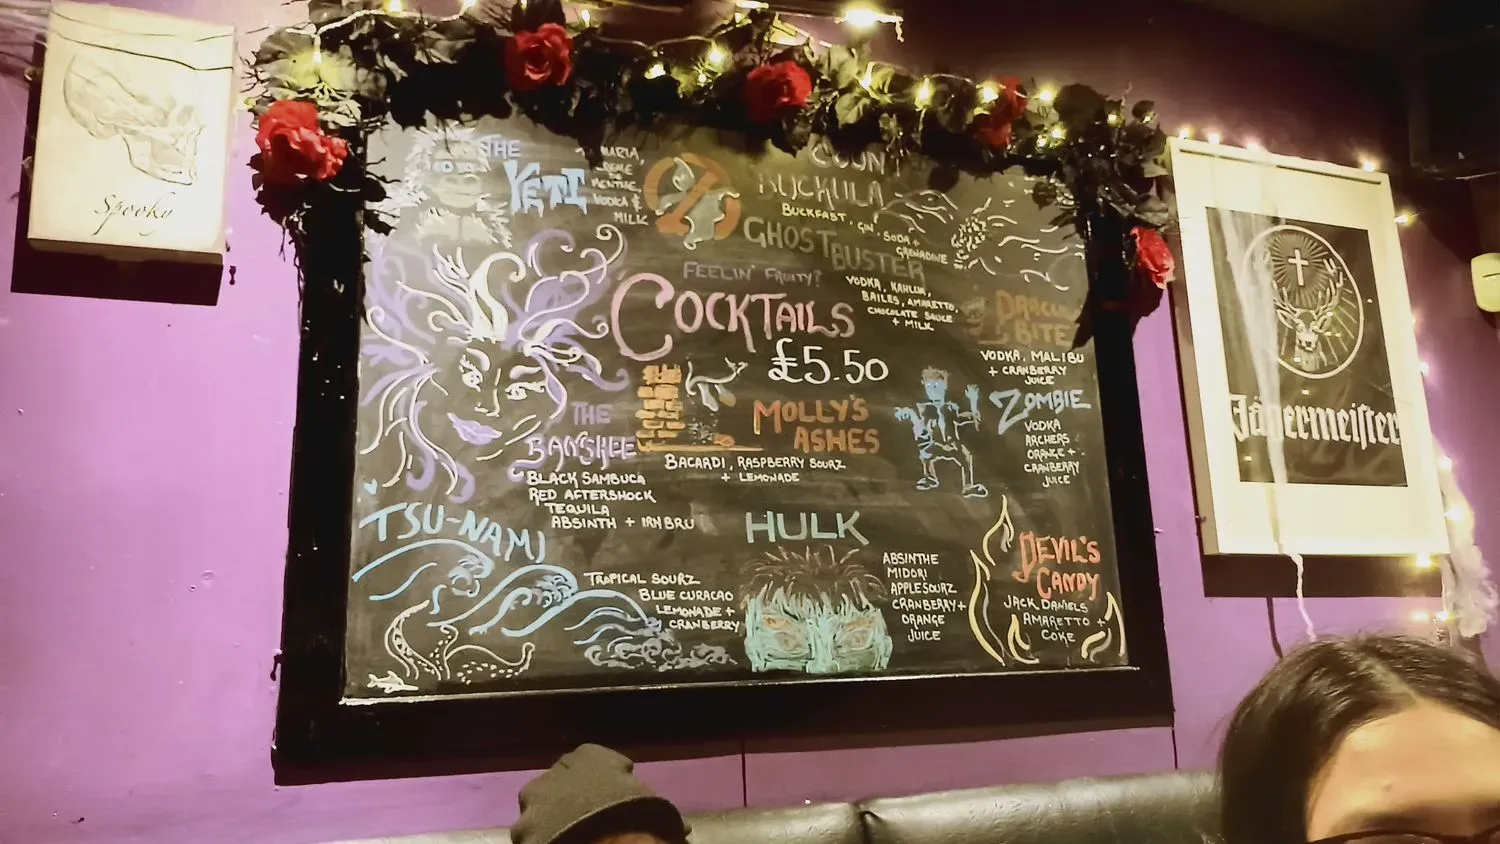 Spooky
THE
YETI
MENTHE,
VODKA &
MILK
COUNT
BUCKULA
BUCKFAST, GIN, SODA +
GRENADINE
GHOSTBUSTER
VODKA, KAHLUA,
BAILES, AMARETTO,
CHOCOLATE SAUCE
+ MILK
FEELIN' FRUITY?
COCKTAILS
£5.50
BITE
VODKA, MALIBU
+ CRANBERRY
JUICE
THE
BANSHEE
BLACK SAMBUCA
RED AFTERSHOCK
TEQUILA
ABSINTH + IRN BRU
MOLLY'S
ASHES
BACARDI, RASPBERRY SOURZ
+ LEMONADE
ZOMBIE
VODKA
ARCHERS
ORANGE +
CRANBERRY
JUICE
TSU-NAMI
TROPICAL SOURZ
BLUE CURACAO
LEMONADE +
CRANBERRY
HULK
ABSINTHE
MIDORI
APPLE SOURZ
CRANBERRY +
ORANGE
JUICE
DEVIL'S
CANDY
JACK DANIELS
AMARETTO +
COKE
Jägermeister